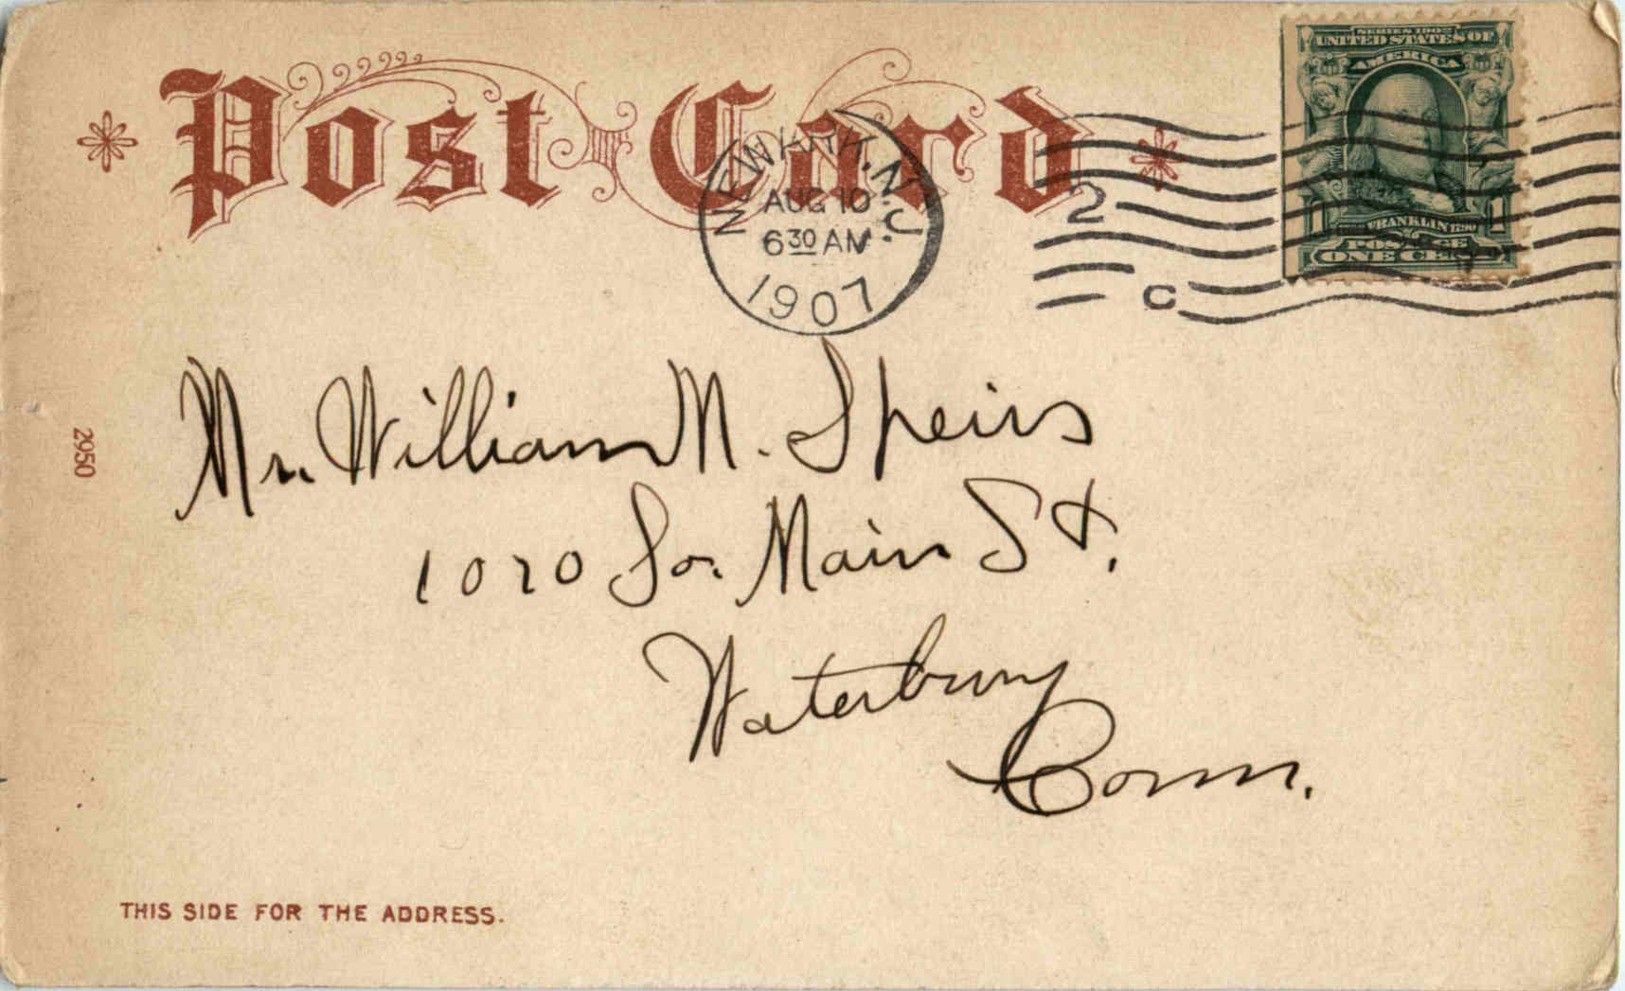 Post Card
NEWARK, N.J.
AUG 10
6 30 AM
1907
2
C
SERIES 1902
UNITED STATES OF
AMERICA
FRANKLIN 1790
1 1
POSTAGE
ONE CENT
Mr. William M. Speirs
1020 So. Main St.
Waterbury
Conn.
2950
THIS SIDE FOR THE ADDRESS.